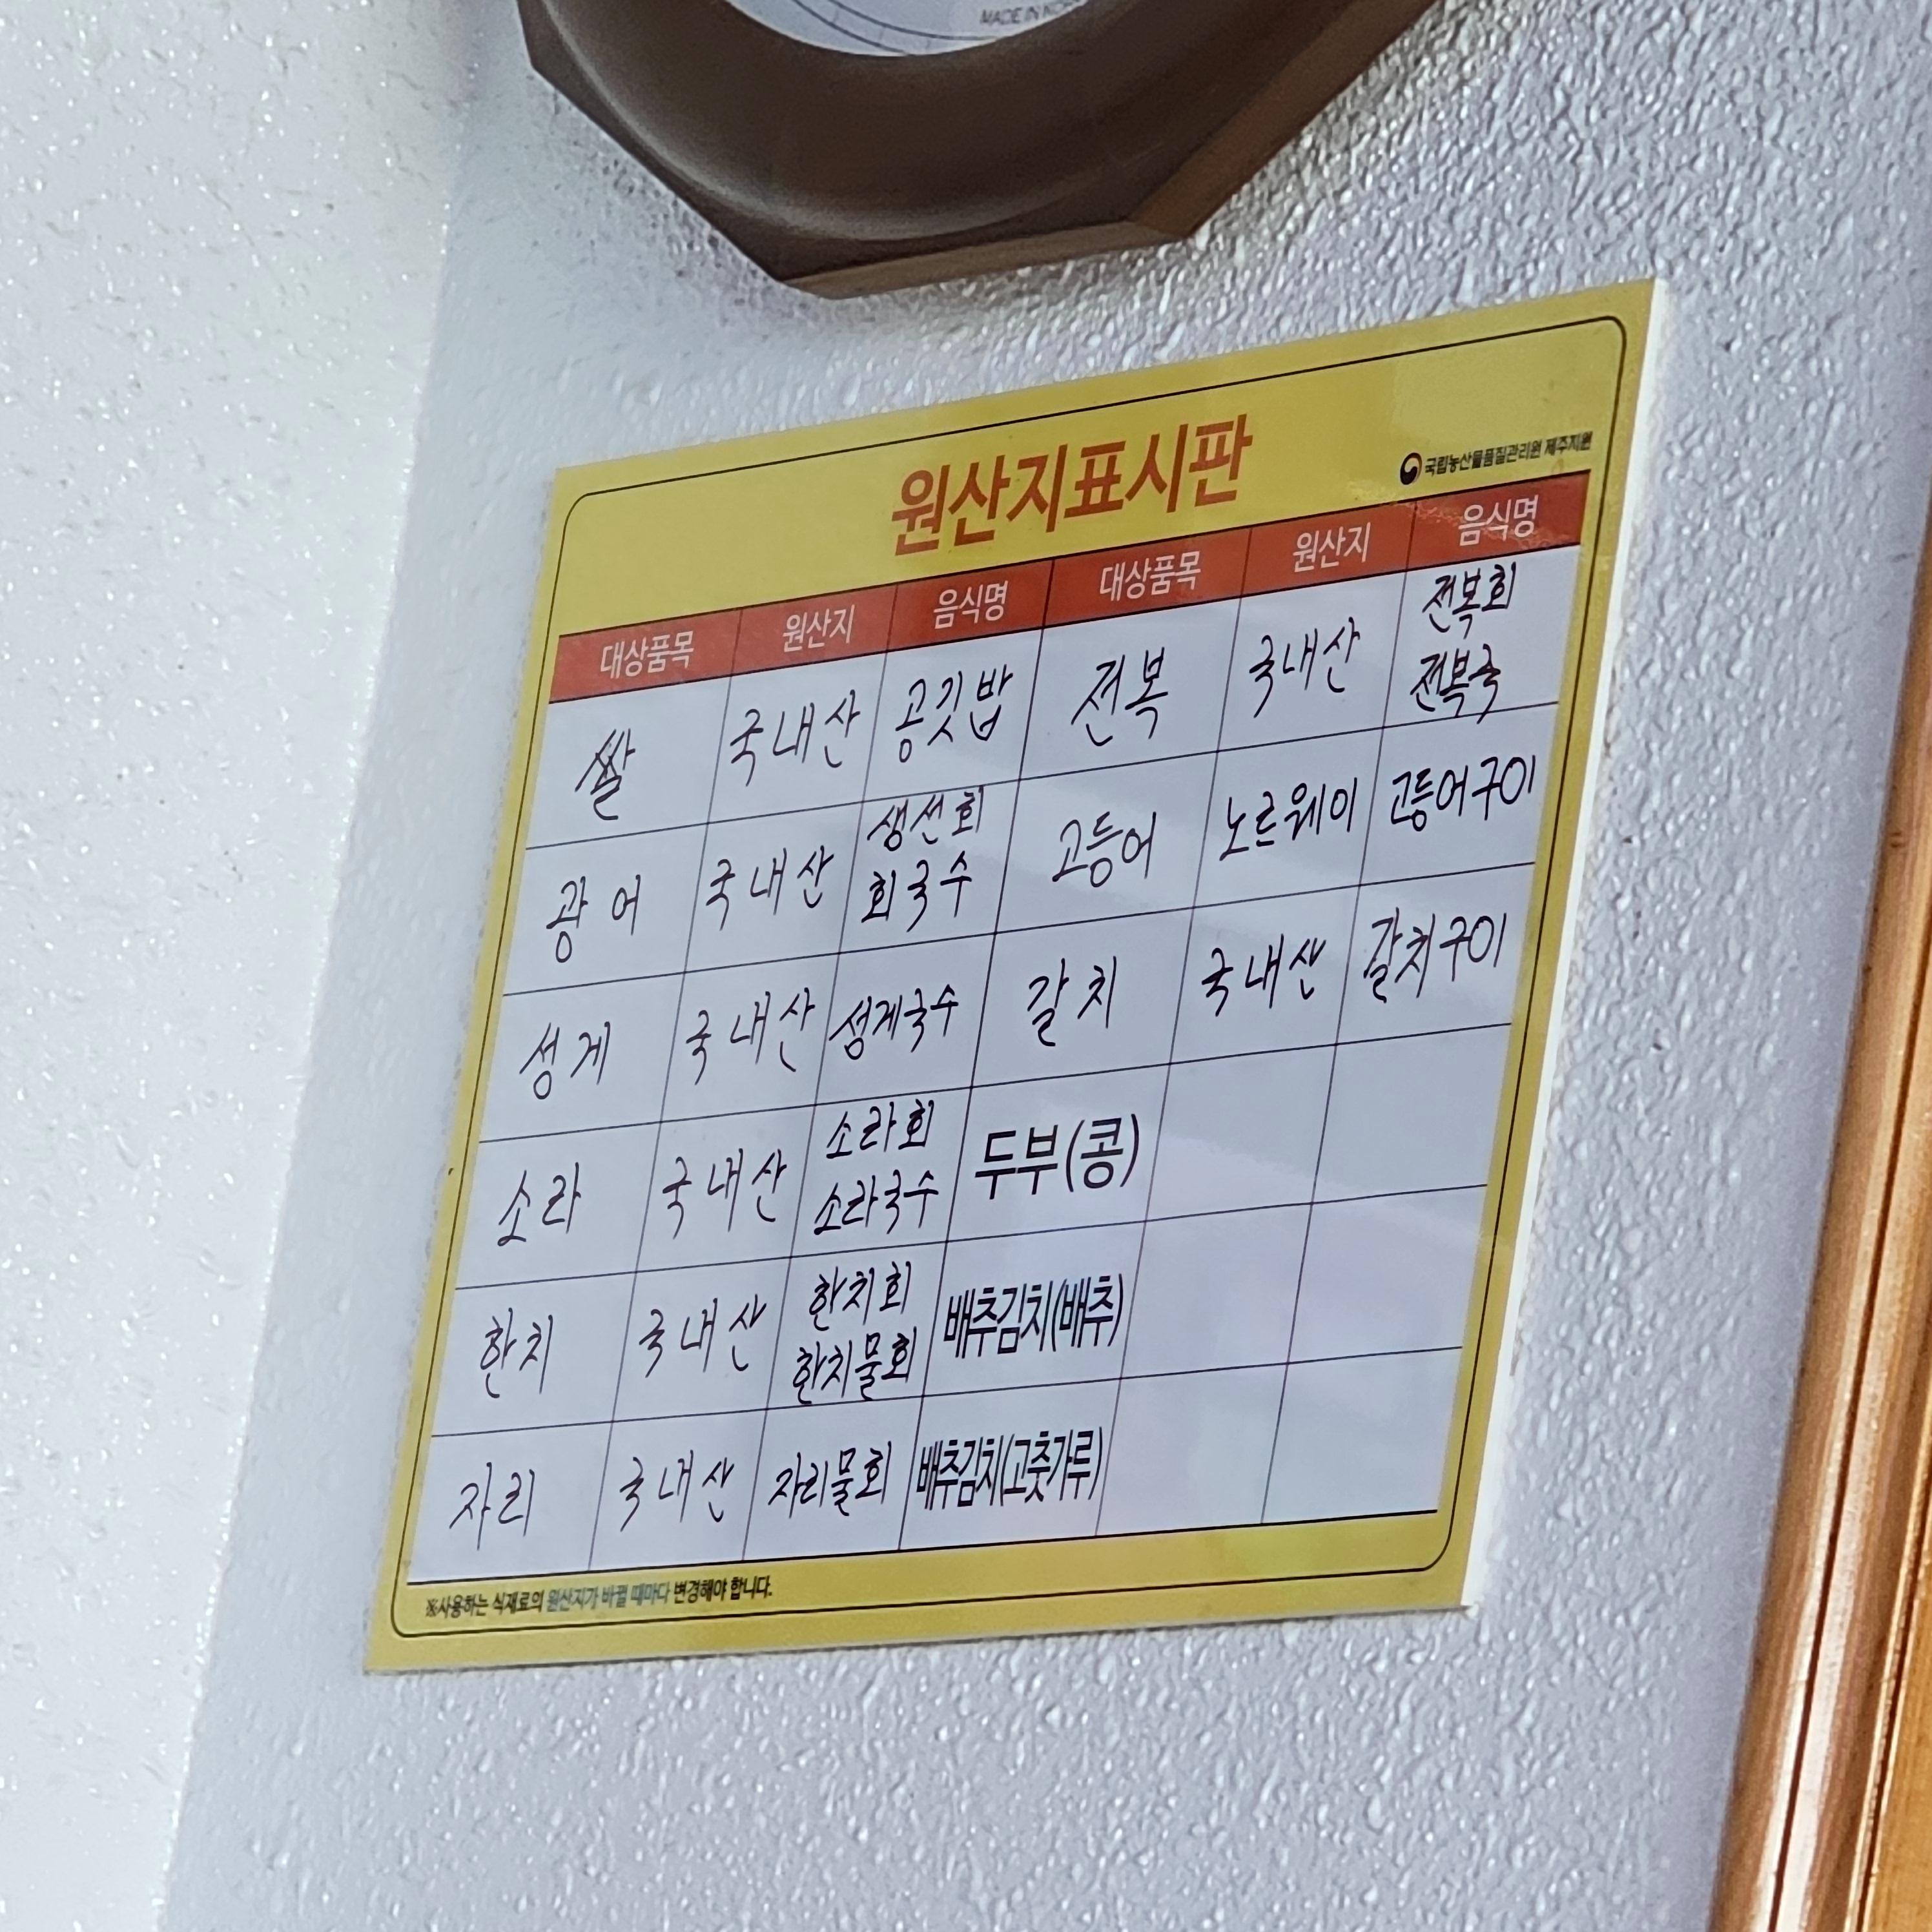 MADE IN KOR
원산지표시판
국립농산물품질관리원 제주지원
대상품목 원산지 음식명 대상품목 원산지 음식명
쌀 국내산 공깃밥 전복 국내산 전복회
전복국
광어 국내산 생선회
회국수
고등어 노르웨이 고등어구이
성게 국내산 성게국수 갈치 국내산 갈치구이
소라 국내산 소라회
소라국수
두부(콩)
한치 국내산 한치회
한치물회
배추김치(배추)
자리 국내산 자리물회 배추김치(고춧가루)
※사용하는 식재료의 원산지가 바뀔 때마다 변경해야 합니다.